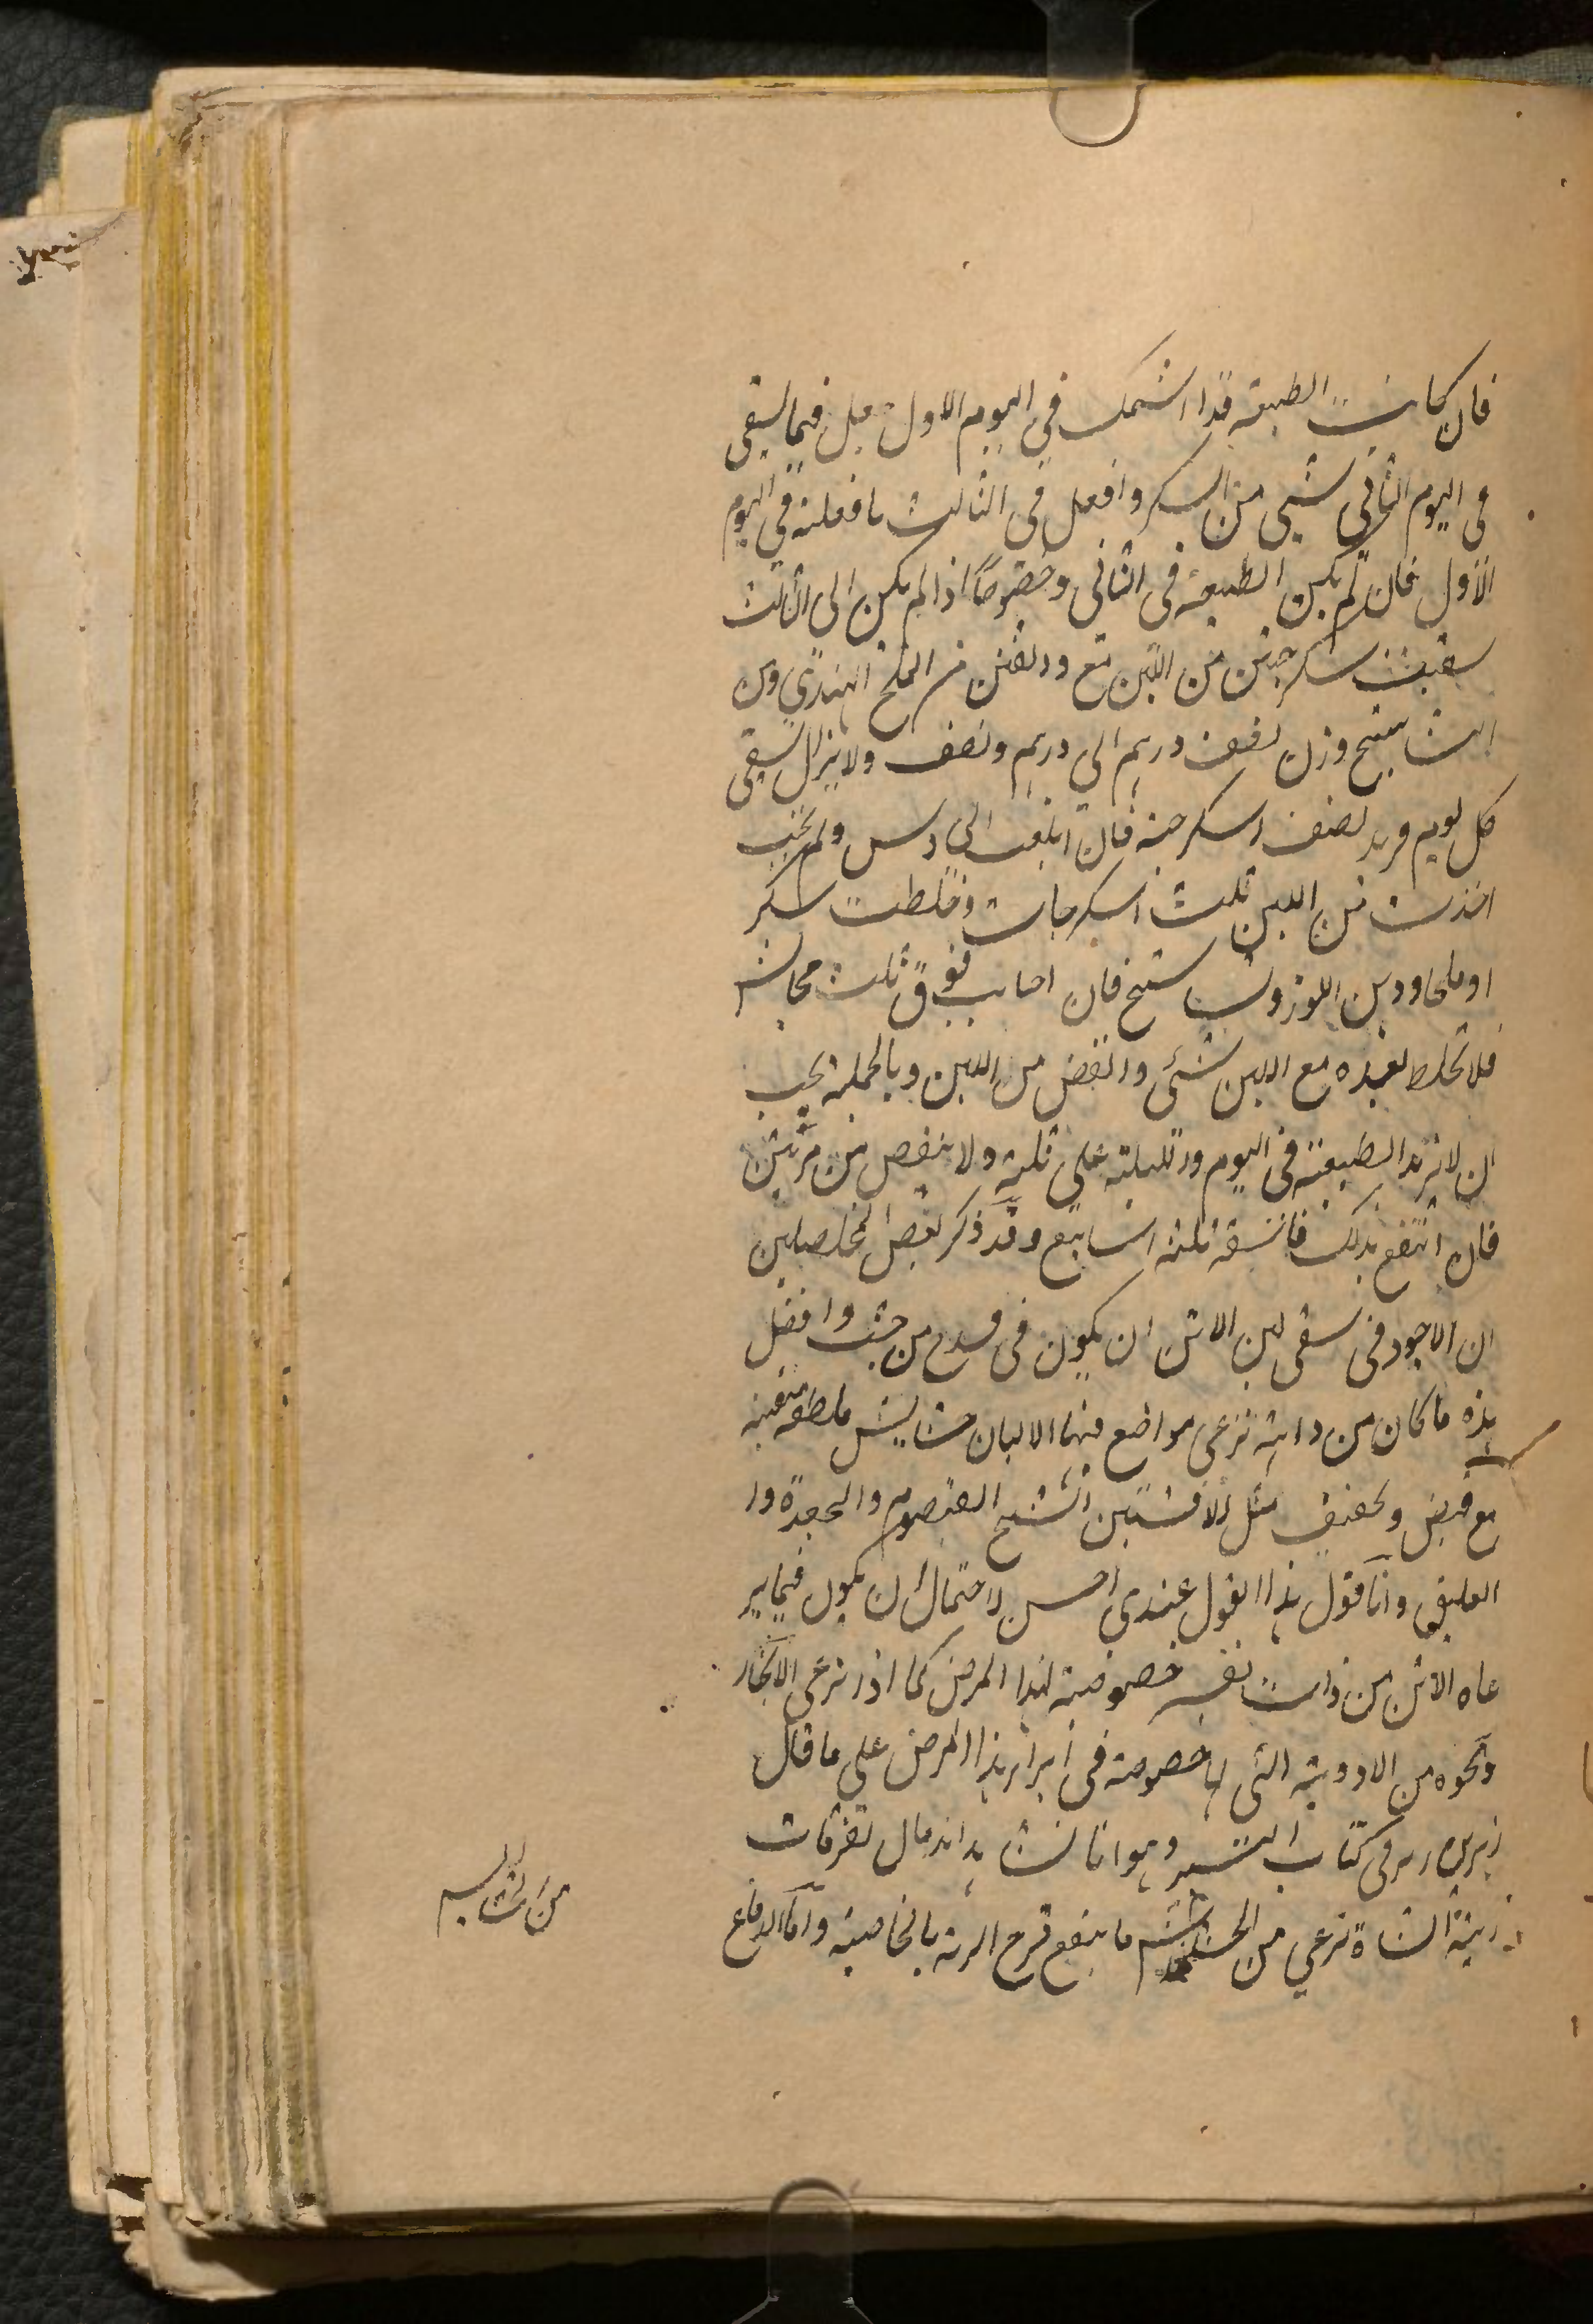 فان كانت الطبيعة قد استمسك في اليوم الاول جعل فيما يسقى
فى اليوم الثاني شيى من السكر وافعل في الثالث ما فعلته في اليوم
الاول فان لم يكن الطبيعة في الثاني وخصوصًا اذا لم يكن الى الثالث
سقيت سكرجتين من اللبن مع ودنقين من الملح الهندي ومن
النشاستج وزن نصف درهم الى درهم ونصف ولا يزال يسقى
كل يوم ويزيد نصف اسكرجة فان ابلغت الى دس ولم تجب
اخذت من اللبن ثلث اسكرجات وخلطت سكر
او ملحا ودهن اللوز ونشاستج فان اجابت فوق ثلث مجالس
فلا تخلط بعده مع اللبن شئ وانقض من اللبن وبالجملة يجب
ان لا تزيد الطبيعة في اليوم ودلليلة على ثلثة ولا ينقص من مرتين
فان انتفع بذلك فاسقه ثلثة اسابيع وقد ذكر بعض المحصلين
ان الاجود في سقى لبن الاتن ان يكون في قدح من خشب وافضل
هذه ما كان من دابة ترعى مواضع فيها الالبان حشايش ملطفة منقية
مع قبض وتجفيف مثل الافسنتين الشيح القيصوم والجعدة وا
العليق وانا اقول هذا القول عندي احسن لاحتمال ان يكون فيما ير
عاه الاتن من ذات نفسه خصوصية لهذا المرض كما اذا ترعى الانجار
ونحوه من الادوية التى لها خصوصة في ابراز هذا المرض على ما قال
زهر في كتاب التيسير وهو انا نشاهد اندمال تفرقات
رية الشاة ترعى من الحشايش ما ينفع قرح الرئة بالخاصية واما الدفاع